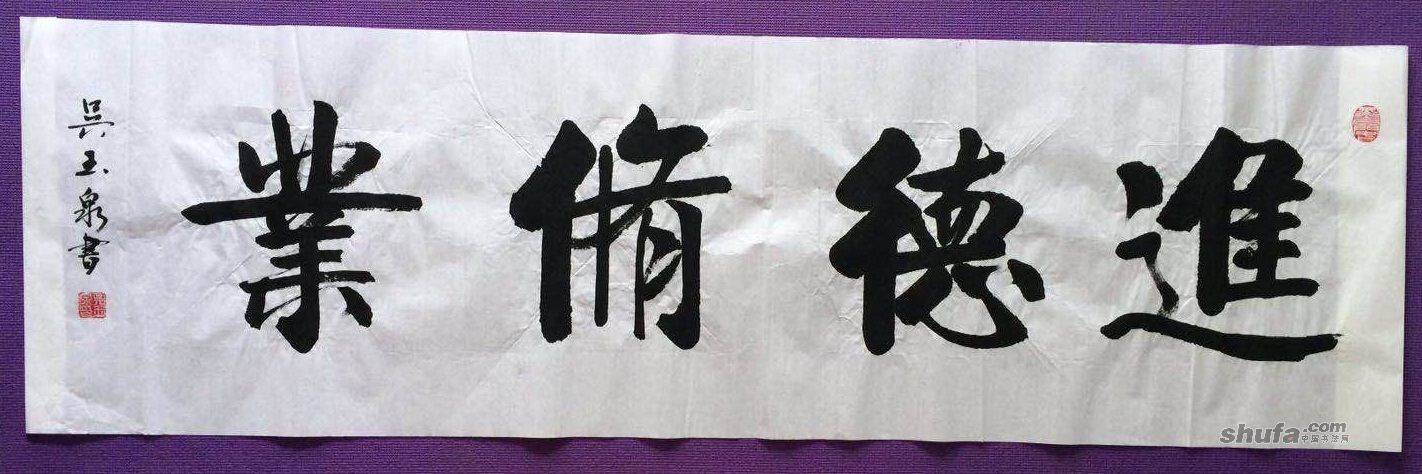 進德脩業
吳玉泉書
shufa.com
中国书法网